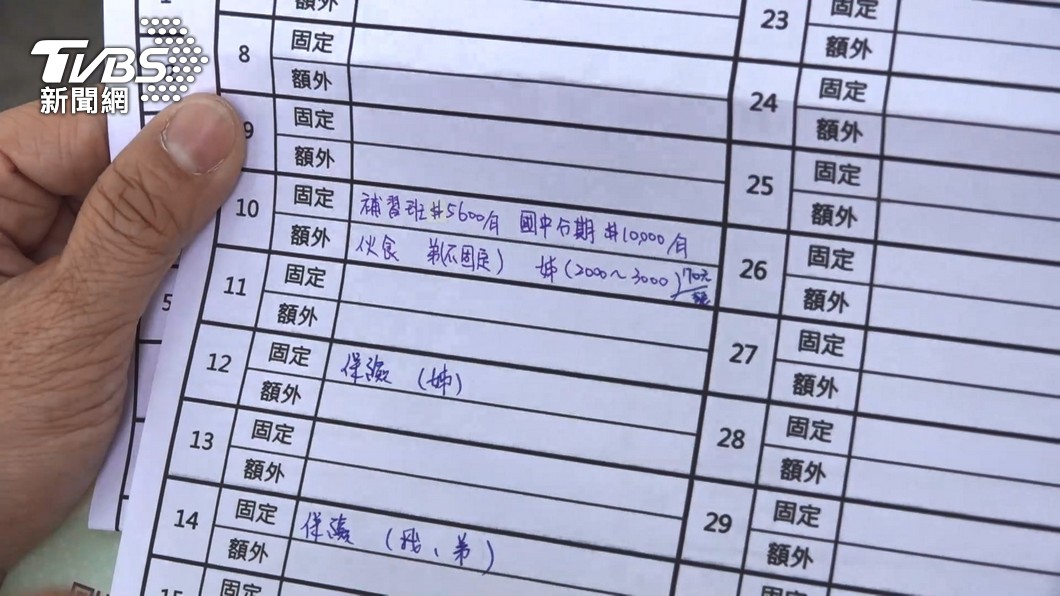 TVBS
新聞網
額外
8 固定
額外
9 固定
額外
10 固定 補習班 #5600/月 國中 #10,000/月
額外 伙食 弟(不固定) 姊(2000~3000) 70元
11 固定
額外
12 固定 保險 (姊)
額外
13 固定
額外
14 固定 保險 (我、弟)
額外
15 固定
5
23 固定
額外
24 固定
額外
25 固定
額外
26 固定
額外
27 固定
額外
28 固定
額外
29 固定
額外
固定